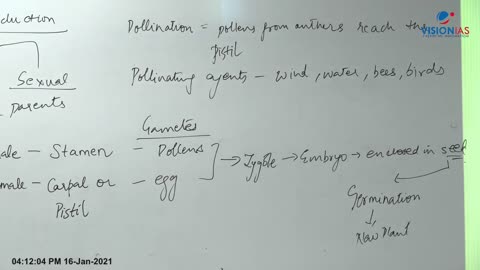 duction
Pollination = pollens from anthers reach the
pistil
VISIONIAS
Sexual
Pollinating agents - wind, water, bees, birds
parents
Gametes
ale - Stamen - Pollens
Zygote → Embryo → enclosed in seed
male - Carpal or - egg
Pistil
Germination
New Plant
04:12:04 PM 16-Jan-2021